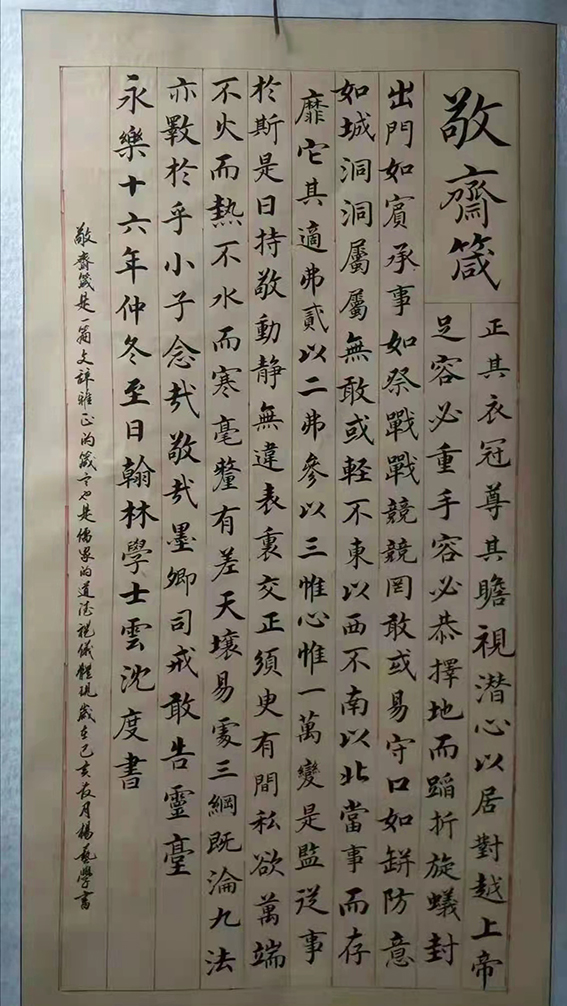 敬齋箴
正其衣冠尊其瞻視潜心以居對越上帝
足容必重手容必恭擇地而蹈折旋蟻封
出門如賓承事如祭戰戰競競罔敢或易守口如缾防意
如城洞洞屬屬無敢或軽不東以西不南以北當事而存
靡它其適弗貳以二弗參以三惟心惟一萬變是監從事
於斯是日持敬動静無違表裏交正須臾有間私欲萬端
不火而熱不水而寒毫釐有差天壤易處三綱既淪九法
亦斁於乎小子念㢤敬㢤墨卿司戒敢告靈臺
永樂十六年仲冬至日翰林學士雲沈度書
敬齋箴是一篇文辞雅正的箴言也是儒家的道德礼儀體現歲在己亥
月楊藝學書